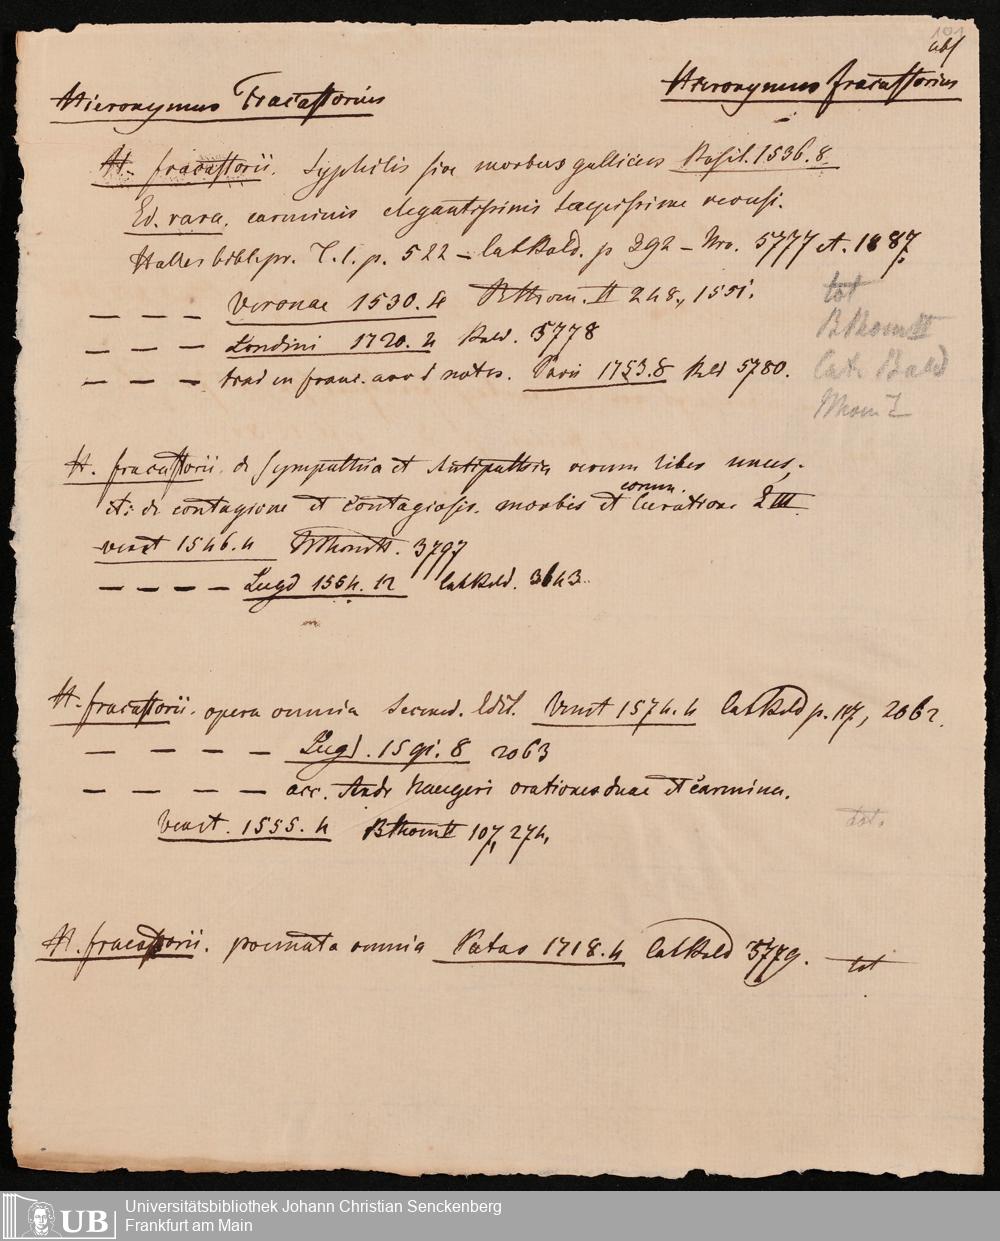 101
abs
Hieronymus Fracastorius
Hieronymus fracastorius
H. fracastorii. Syphilis sive morbus gallicus Basil. 1536. 8.
Ed. rara. carminis elegantissimi saepissime recusi.
Haller bibl. pr. T. 1. p. 522 – Cat Bald. p 292 – Nro. 5777 et. 1887.
– – – Veronae 1530. 4 BThom. II 248, 1551.
– – – Londini 1720. 4 Bald. 5778
– – – trad en franc. avec d notes. Paris 1753. 8 Bld 5780.
tot
BThom II
Cat. Bald
Thom I
H. fracastorii. de Sympathia et Antipathia rerum liber unus,
et: de contagione et Contagiosis. morbis et eorum Curatione L III
venet 1546. 4 BThom II. 3797
– – – – Lugd 1554. 12 Cat Bald. 3643
H. fracastorii. opera omnia secund. Edit. Venet 1574. 4 Cat Bald p. 117, 2062.
– – – – Lugd. 1591. 8 2063
– – – – acc. Andr Naugeri orationes duae et carmina.
Venet. 1555. 4 BThom II 107, 274,
tot.
H. fracastorii. poemata omnia Patav 1718. 4 Cat Bald 5779. tot
UB
Universitätsbibliothek Johann Christian Senckenberg
Frankfurt am Main